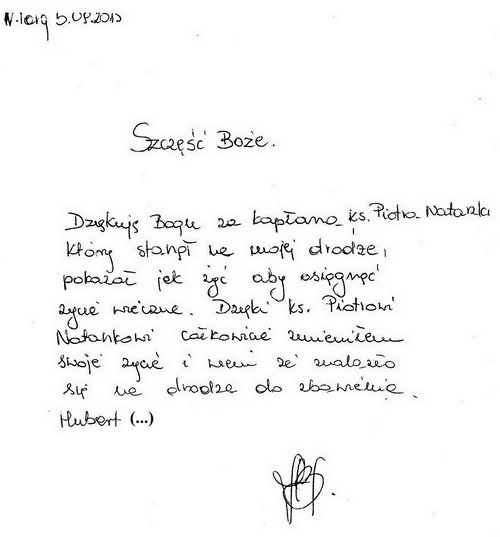 N.Targ 5.09.2013
Szczęść Boże.
Dziękuję Bogu za kapłana ks. Piotra Natanka
który stanął na mojej drodze,
pokazał jak żyć aby osięgnęć
życie wieczne. Dzięki ks. Piotrowi
Natankowi całkowicie zmieniłem
swoje życie i wiem że znalazło
się na drodze do zbawienia.
Hubert (...)